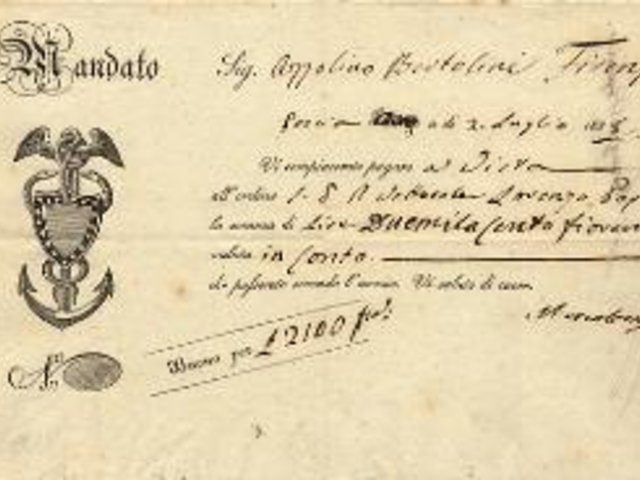 Mandato
Sig. Azzolino Bortolini Firenz
Pescia a di 2. Luglio
Vi compiacerete pagare a Vista
all'ordine S. P. Lorenzo Pap
la somma di Lire Duemila Cento fiorent
valuta in Conto.
che passerete secondo l'avviso. Vi saluto di cuore.
Buono per £ 2100 fior:
N.